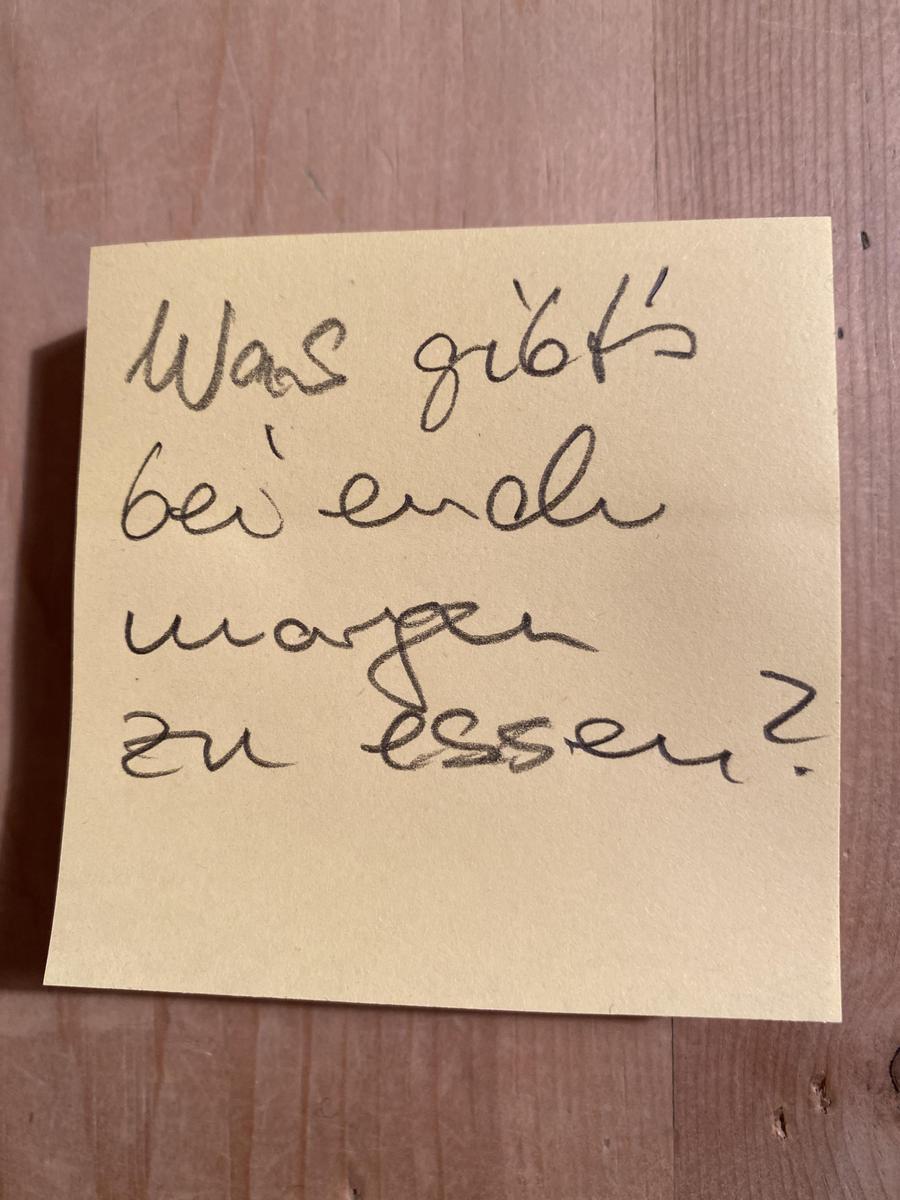 Was gibt's
bei euch
morgen
zu essen?